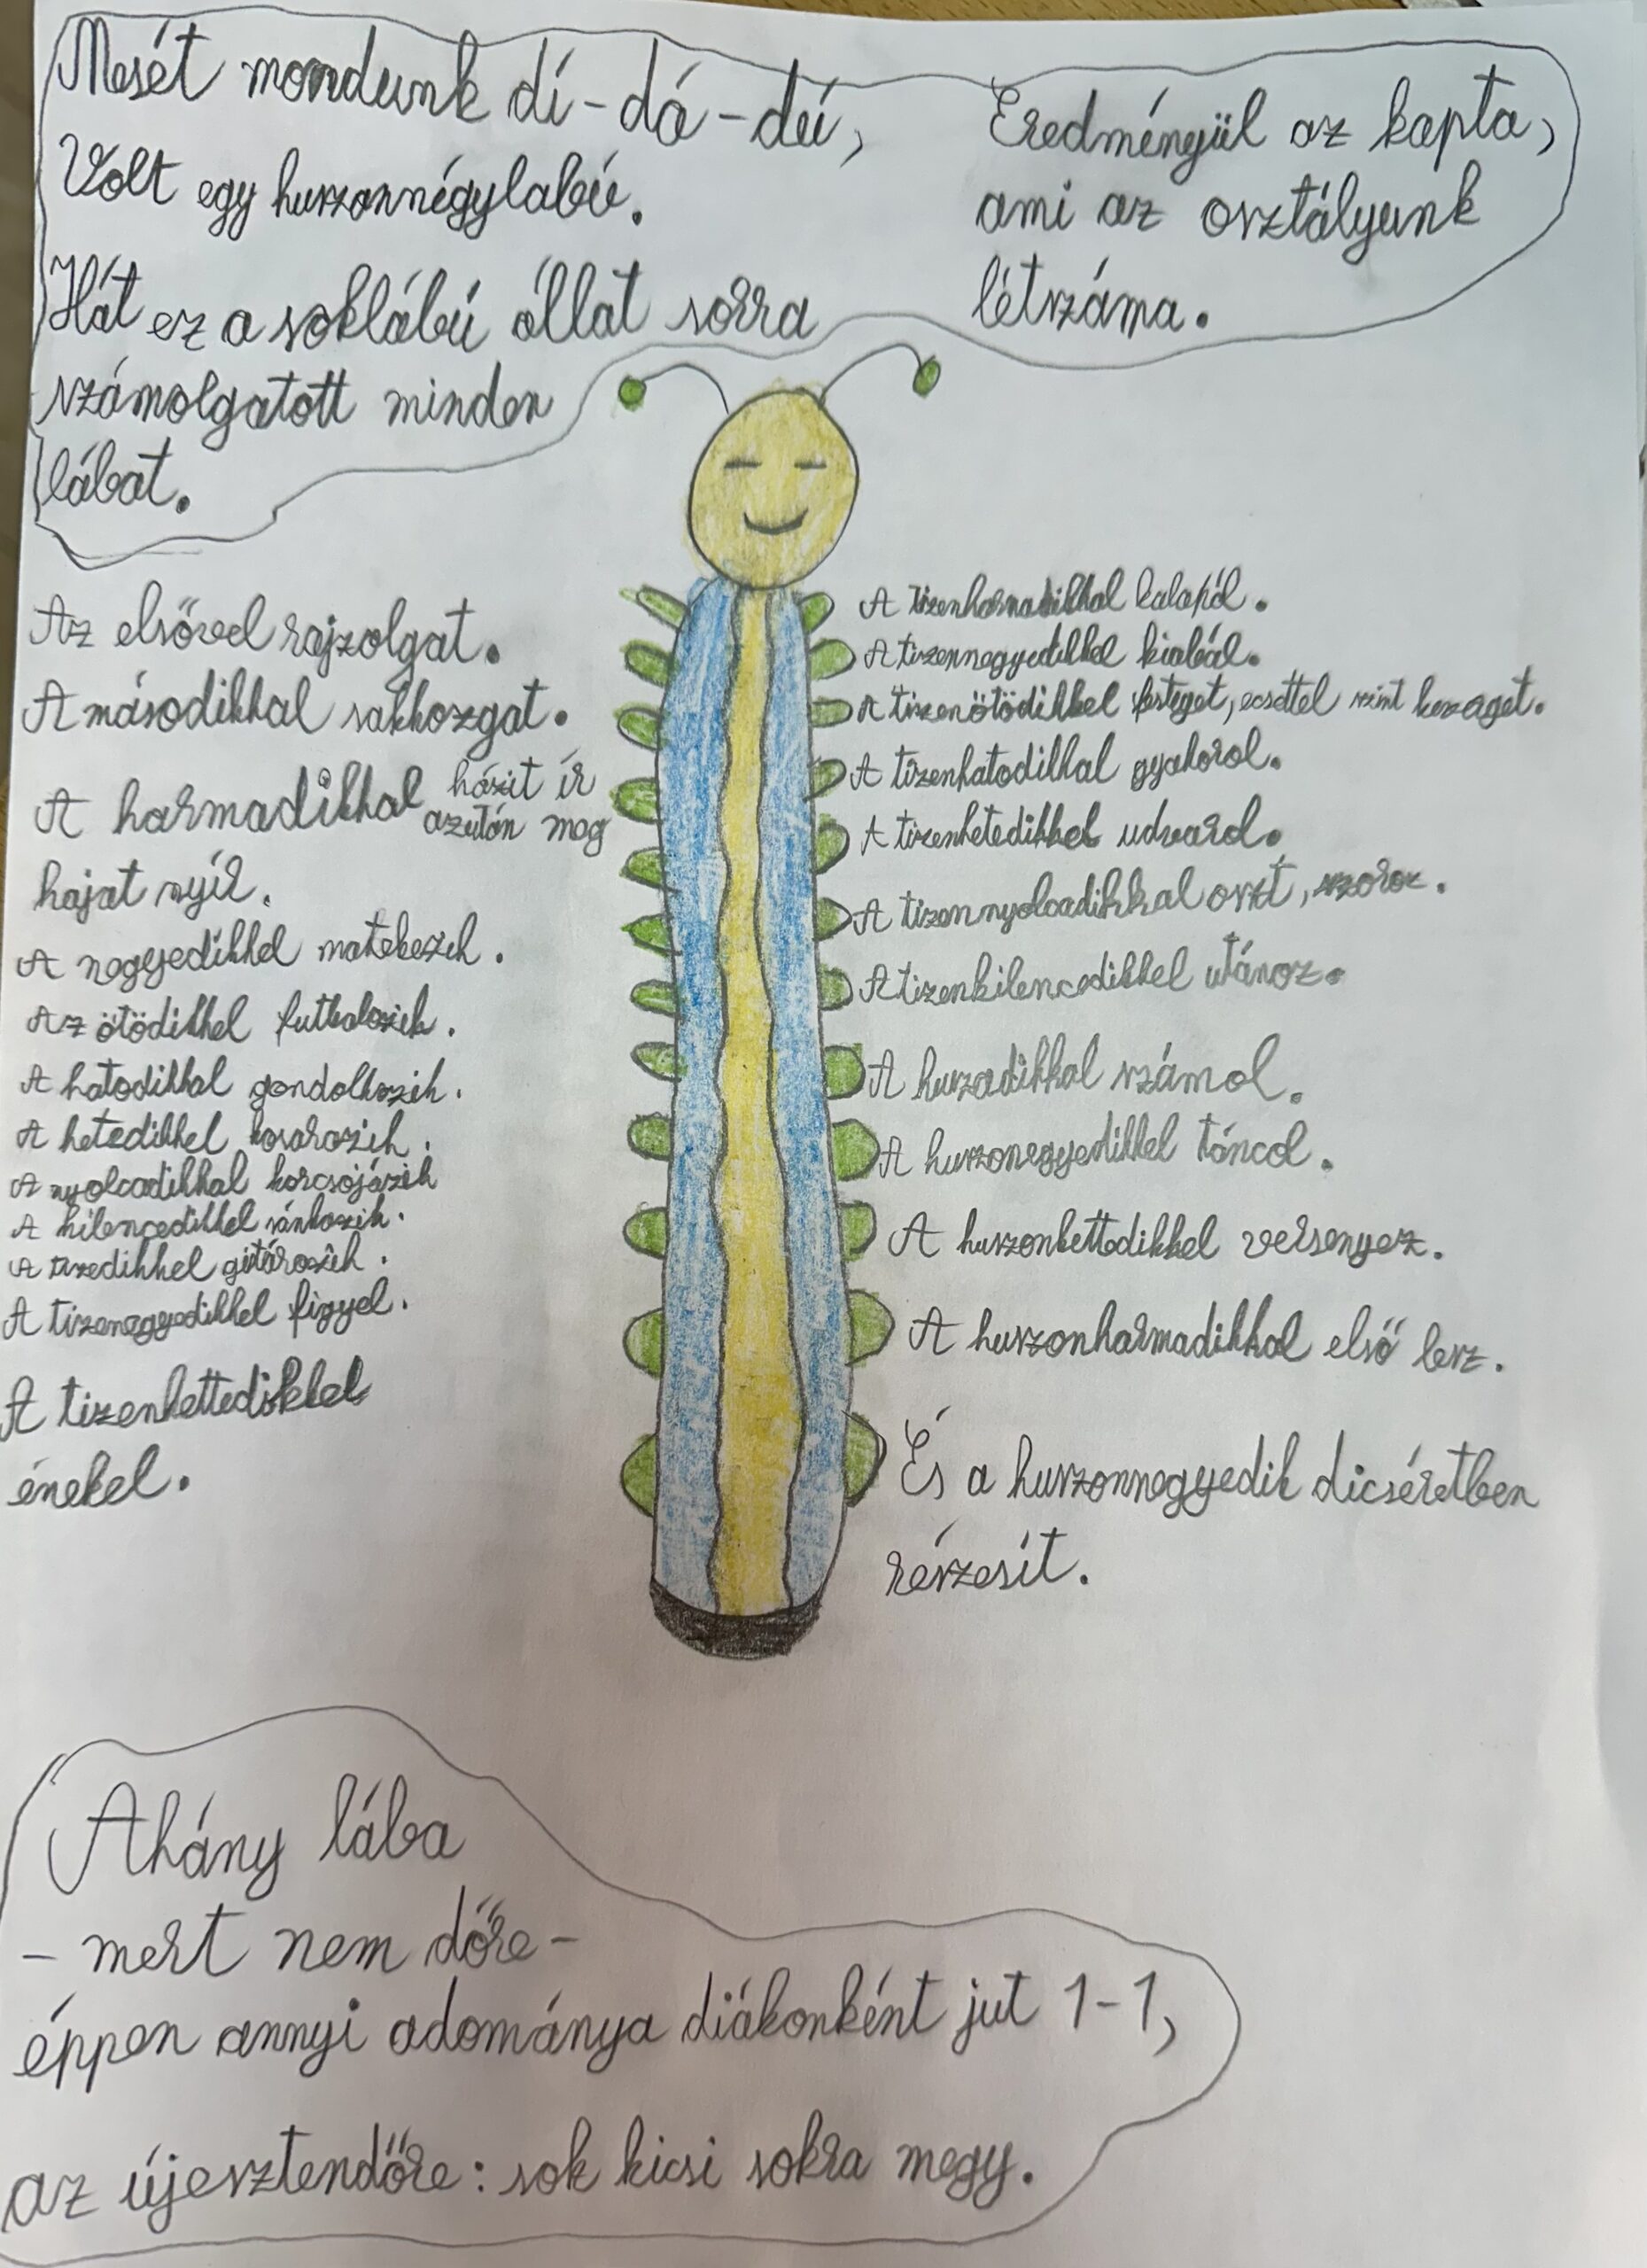 Mesét mondunk dí-dá-dú,
Volt egy huszonnégylabú.
Hát ez a soklábú állat sorra
számolgatott minden
lábat.
Eredményül az kapta,
ami az osztályunk
létszáma.
Az elsővel rajzolgat.
A másodikkal sakkozgat.
A harmadikkal házit ír
azután meg
hajat nyír.
A negyedikkel matekezik.
Az ötödikkel futballozik.
A hatodikkal gondolkozik.
A hetedikkel kosarazik.
A nyolcadikkal korcsojázik
A kilencedikkel szánkozik.
A tizedikkel gitározik.
A tizenegyedikkel figyel.
A tizenkettedikkel
énekel.
A tizenharmadikkal kalapál.
A tizennegyedikkel kiabál.
A tizenötödikkel festeget, ecsettel színt
A tizenhatodikkal gyakorol.
A tizenhetedikkel udvarol.
A tizennyolcadikkal oszt, szoroz.
A tizenkilencedikkel utánoz.
A huszadikkal számol.
A huszonegyedikkel táncol.
A huszonkettedikkel versenyez.
A huszonharmadikkal első lesz.
És a huszonnegyedik dicséretben
részesít.
Ahány lába
- mert nem dőre -
éppen annyi adománya diákonként jut 1-1,
az újesztendőre: sok kicsi sokra megy.